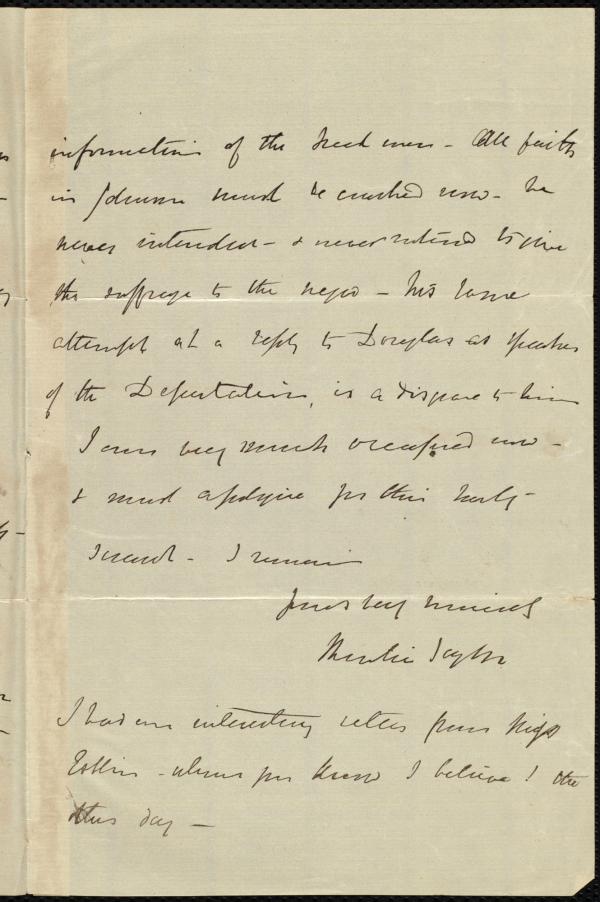 information of the freedmen - All faith
in Johnson must be crushed now - he
never intended - & never intends to give
the suffrage to the negro - his lame
attempt at a reply to Douglas as speaker
of the Deputation, is a disgrace to him
I am very much occupied now -
& must apologise for this hasty
scrawl - I remain
yours very sincerely
Mentia Taylor
I had an interesting letter from Miss
Estlin - whom you know I believe! the
this day -